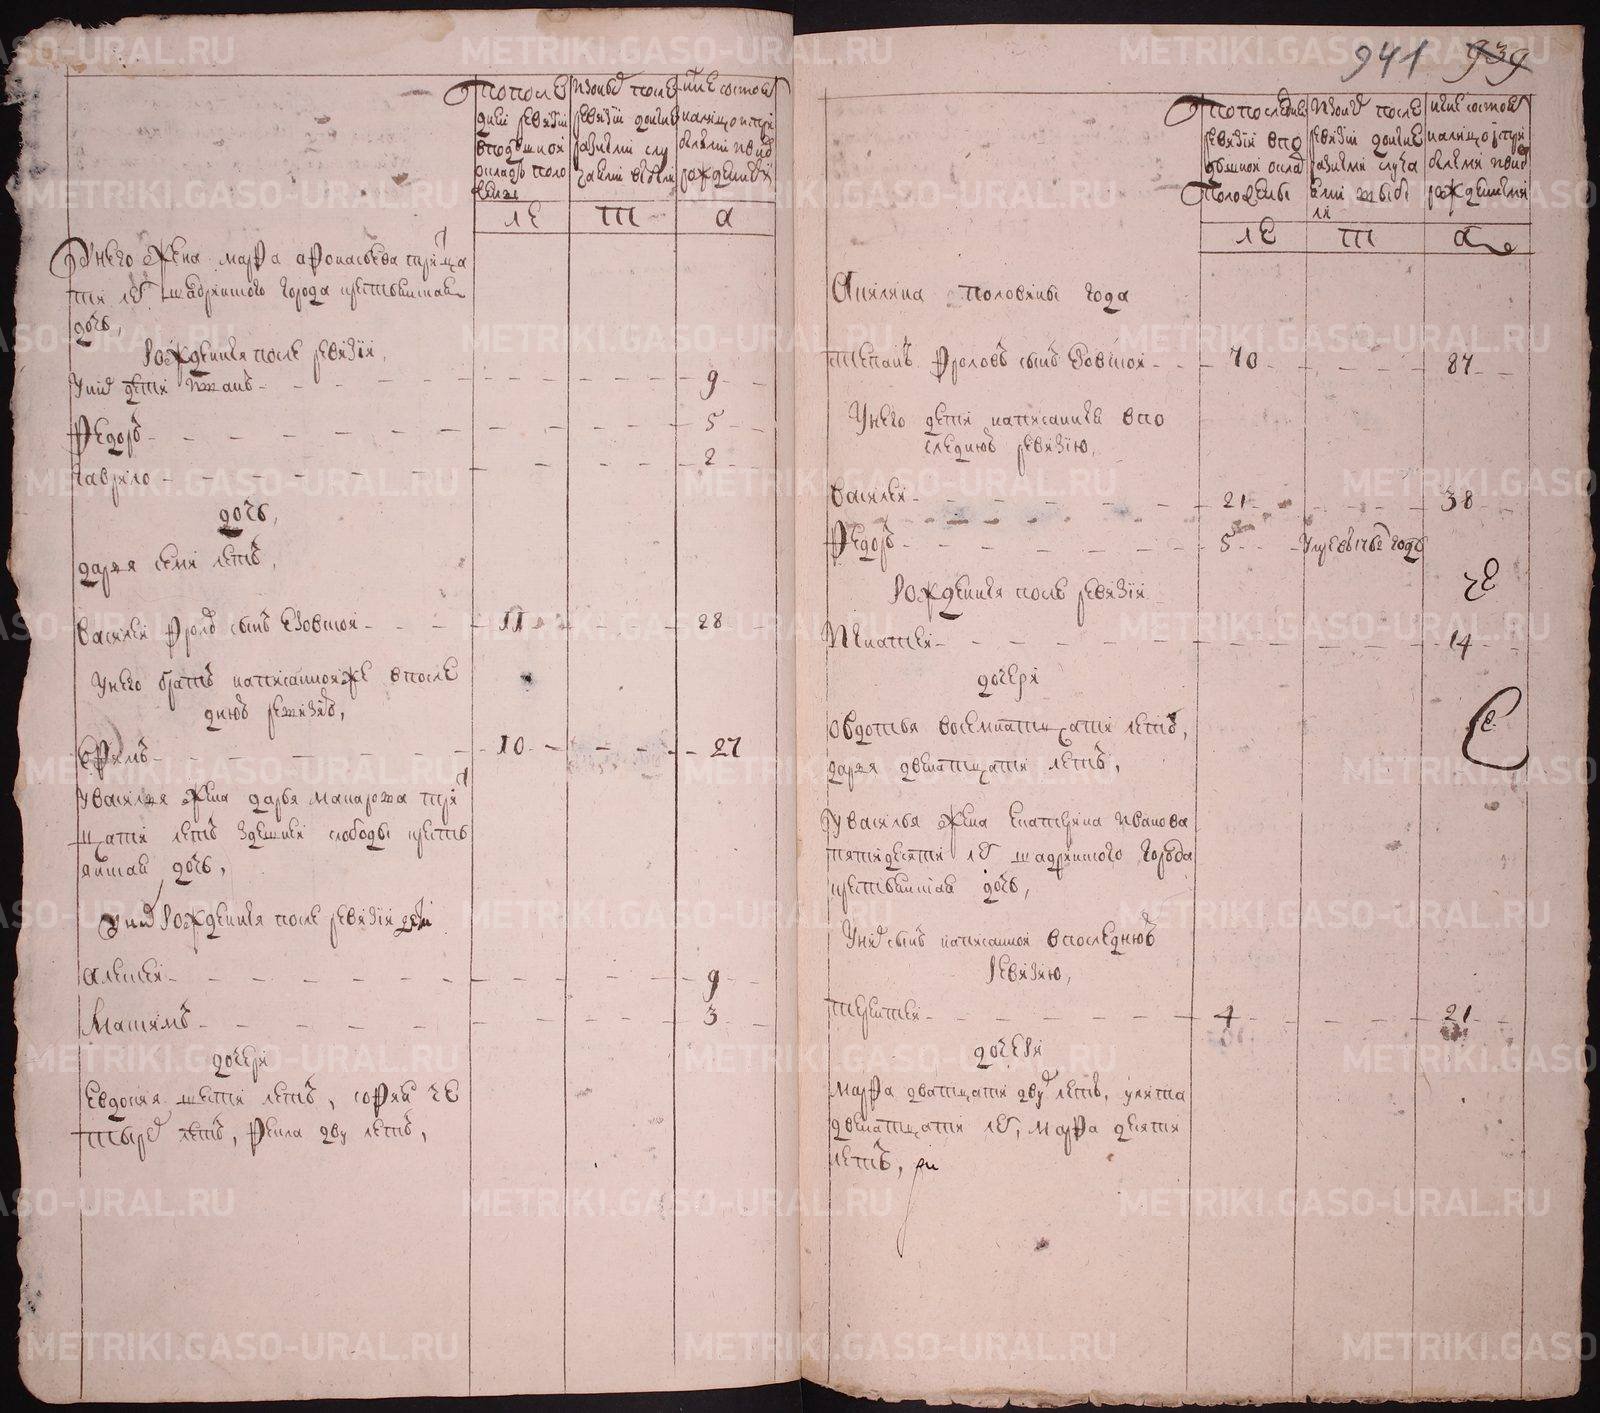 METRIKI.GASO-URAL.RU
941 939
По после
дней ревизии
в подушной
окладъ поло
жены
Изоныхъ после
ревизии разными слу
чаями
Ныне состоитъ
налицо и с при
былыми и вновь
рожденными
ле
т
а
У него жена Марфа Афонасьева трит
ти летъ Шадринского города крестьянская
дочь,
Рожденныя после ревизии,
У нихъ дети Иванъ 9
Федоръ 5
Гаврило 2
дочь,
Дарья семи летъ,
Василей Фроловъ сынъ Езовской 11 28
У него братъ написанной же в после
днюю ревизию,
Ефимъ 10 27
У Василья жена Дарья Макарова три
тцати летъ здешней слободы кресть
янская дочь,
У нихъ рожденныя после ревизии дети
Алексей 9
Максимъ 3
дочери
Евдокия шести летъ, Софья че
тырехъ летъ, Фекла дву летъ,
По последней
ревизии в по
душной окладъ
положены
ревизии
разными случа
ями выбы
ли
Ныне состоитъ
налицо с при
былыми и вновь
рожденными
ле
т
а
Акилина половины года
Степанъ Фроловъ сынъ Езовской 70 87
У него дети написанныя в по
следнюю ревизию,
Василей 21 38
Федоръ 5 Умре в 1762 годе
Рожденныя после ревизии
Игнатей 14
дочери
Овдотья восемнатцати летъ,
Дарья двенатцати летъ,
У Василья жена Екатерина Иванова
пятидесяти летъ Шадринского города
крестьянская дочь,
У нихъ сынъ написанной в последнюю
ревизию,
Терентей 4 21
дочери
Марфа дватцати дву летъ, Улита
двенатцати летъ, Марфа десяти
летъ,